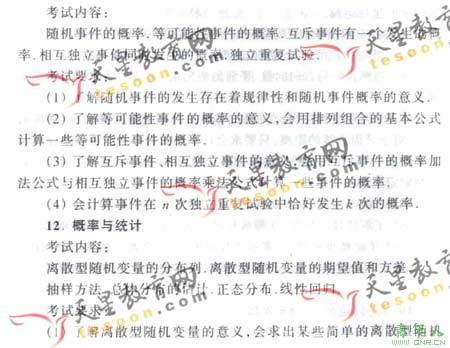 考试内容:
随机事件的概率.等可能性事件的概率.互斥事件有一个发生的概
率.相互独立事件同时发生的概率.独立重复试验.
考试要求:
(1)了解随机事件的发生存在着规律性和随机事件概率的意义.
(2)了解等可能性事件的概率的意义,会用排列组合的基本公式
计算一些等可能性事件的概率.
(3)了解互斥事件、相互独立事件的意义,会用互斥事件的概率加
法公式与相互独立事件的概率乘法公式计算一些事件的概率.
(4)会计算事件在 n 次独立重复试验中恰好发生 k 次的概率.
12. 概率与统计
考试内容:
离散型随机变量的分布列.离散型随机变量的期望值和方差.
抽样方法.总体分布的估计.正态分布.线性回归.
考试要求:
(1)了解离散型随机变量的意义,会求出某些简单的离散型随机
天星教育网
tesoon.com
天星教育网
tesoon.com
天星教育网
tesoon.com
天星教育网
tesoon.com
www.QNR.cn